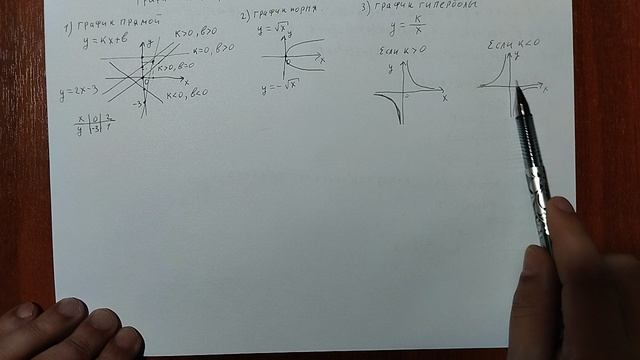 1) График прямой
y = kx+b
y
k>0, b>0
k=0, b>0
k>0, b=0
x
y=2x-3
k<0, b<0
-3
x | 0 | 2
y | -3 | 1
2) График корня
y = √x
y
x
y = -√x
3) График гиперболы
y = k/x
Если k>0
y
x
Если k<0
y
x